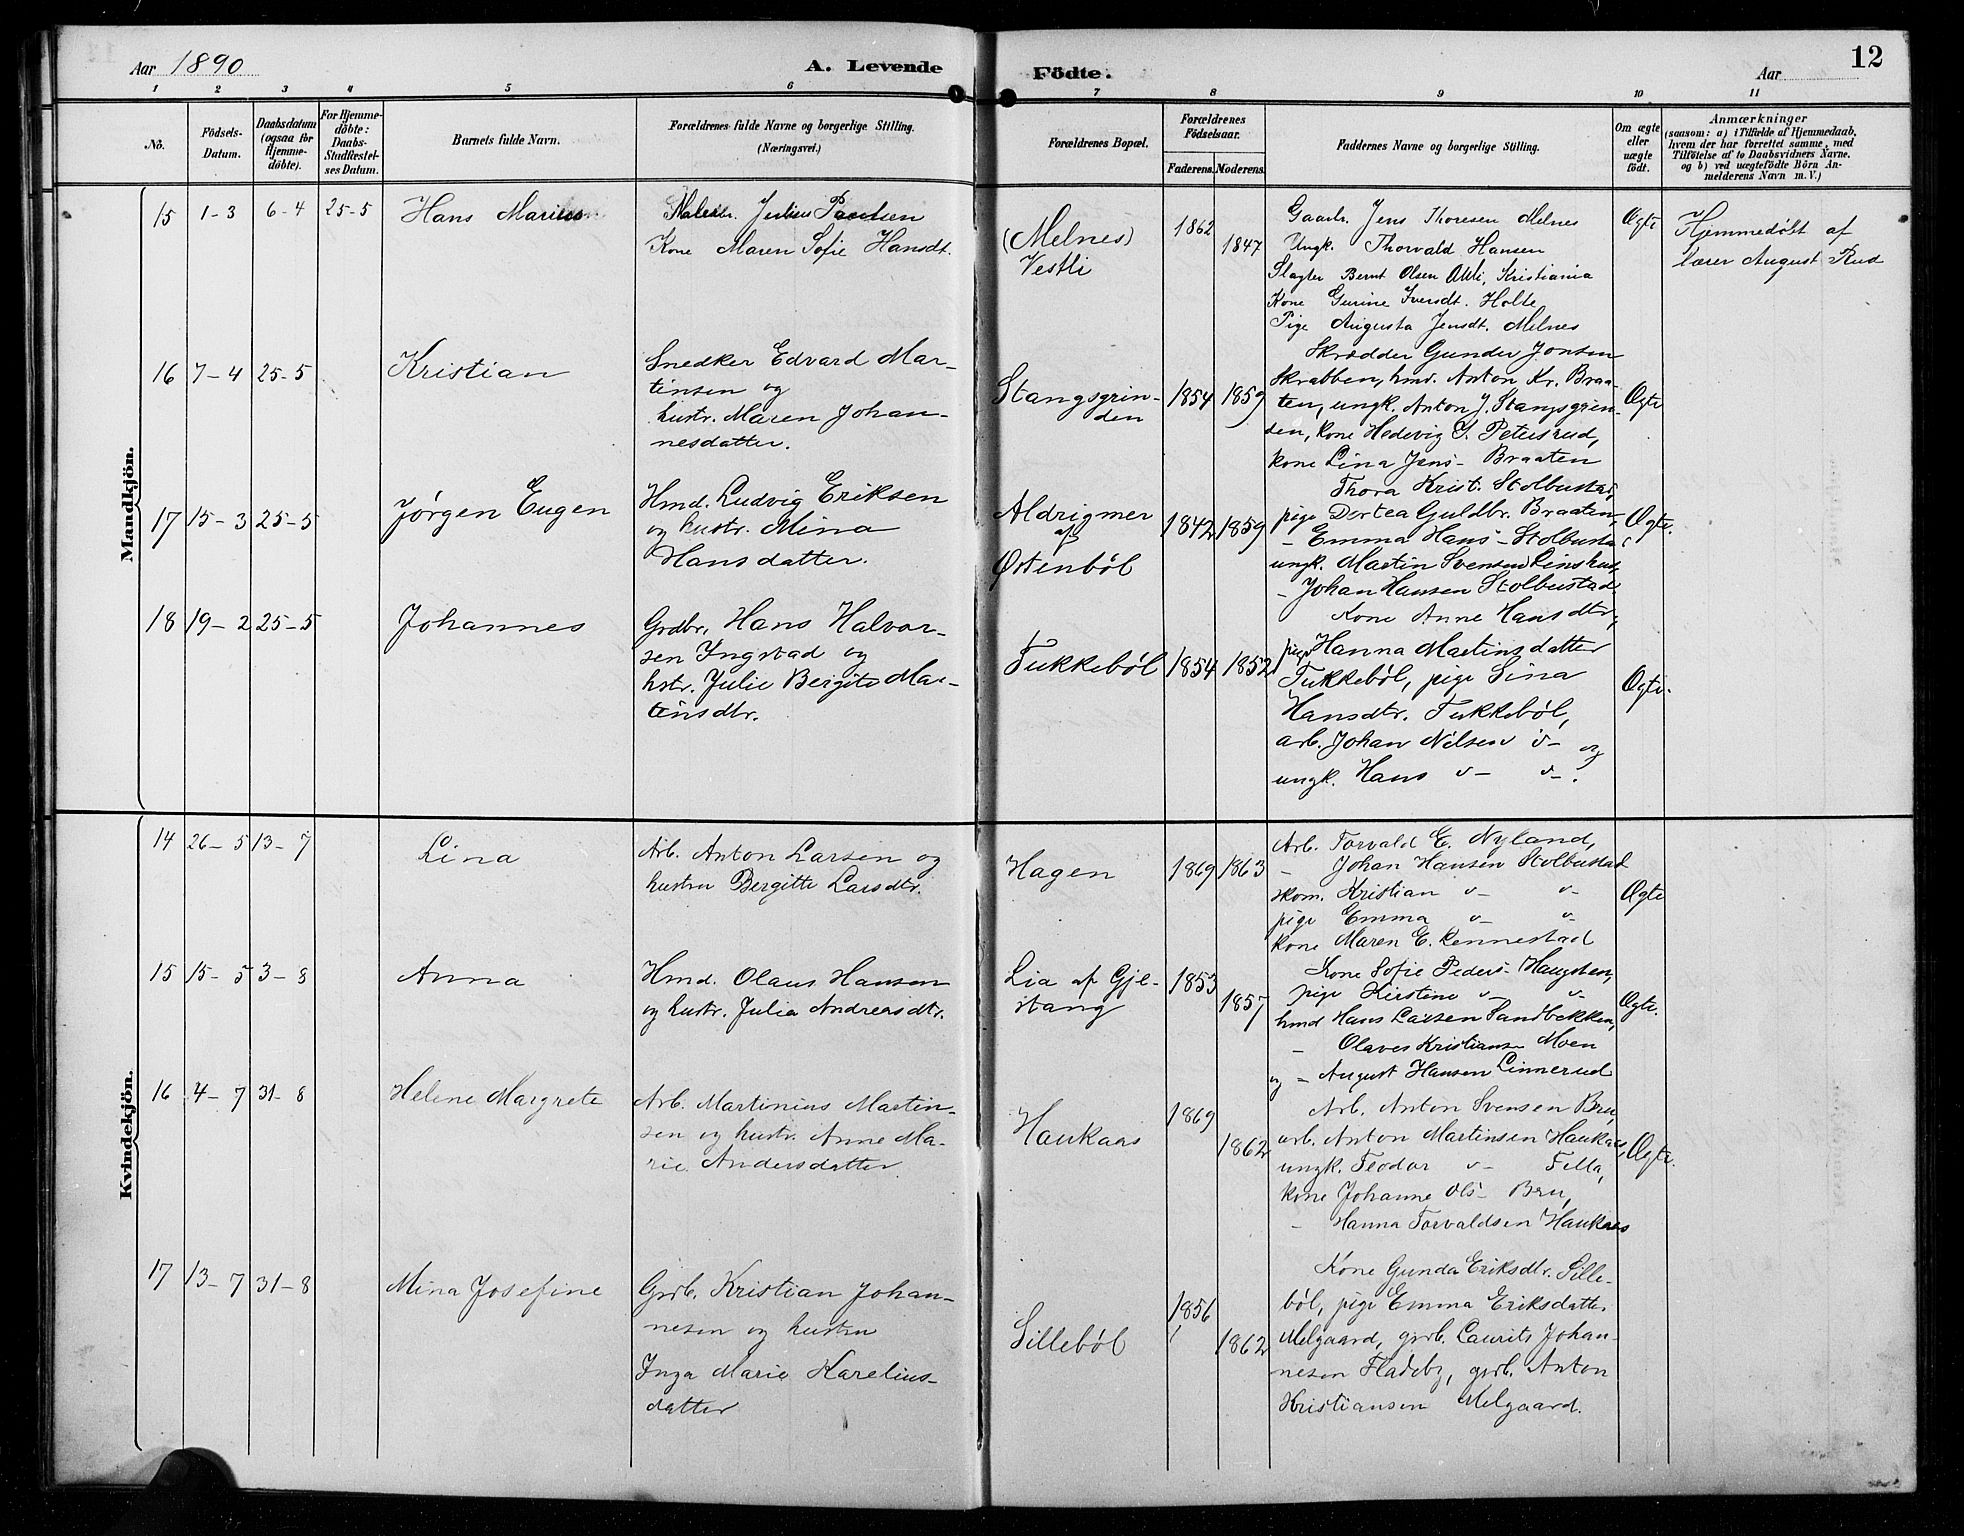 Aar 1890
A. Levende Födte.
Aar
12
1 2 3 4 5 6 7 8 9 10 11
No.
Födsels-Datum.
Daabsdatum (ogsaa for Hjemmedöbte).
For Hjemmedöbte: Daabs-Stadfæstelses Datum.
Barnets fulde Navn.
Forældrenes fulde Navne og borgerlige Stilling. (Næringsvei.)
Forældrenes Bopæl.
Forældrenes Födselsaar.
Faderens. Moderens.
Faddernes Navne og borgerlige Stilling.
Om ægte eller uægte födt.
Anmærkninger
(saasom: a) i Tilfælde af Hjemmedaab, hvem der har forrettet samme, med Tilföielse af to Daabsvidners Navne, og b) ved uægtefödte Börn Anmelderens Navn m. V.)
Mandkjön.
15 1-3 6-4 25-5 Hans Marius
Julius Paulsen
Kone Maren Sofie Hansdt.
(Melnes)
Vestli
1862
1847
Gaarbr. Jens Thoresen Melnes
Ungk. Thorvald Hansen
Slagter Bernt Olsen Kristiania
Kone Gurine Iversdt. Holte
Pige Augusta Jensdt. Melnes
Ægte
Hjemmedøbt af
lærer August Rud
16 7-4 25-5 Kristian
Snedker Edvard Mar-
tinsen og
hustr. Maren Johan-
nesdatter.
Stangsgrin-
den
1854 1859
Skrædder Gunder Jonsen
Skrabben, hmd. Anton Kr. Braa-
ten, ungk. Anton J. Stangsgrin-
den, kone Hedevig S. Petersrud,
kone Lina Jens- Braaten
Ægte
17 15-3 25-5 Jørgen Eugen
Hmd. Ludvig Eriksen
og hustr. Mina
Hansdatter.
Aldrigmer
af
Østenbøl
1842 1859
Thora Krist. Stolbustad,
pige Dortea Guldbr. Braaten,
- Emma Hans- Stolbustad
ungk. Martin Svensen Linshus,
- Johan Hansen Stolbustad
Ægte.
18 19-2 25-5 Johannes
Grdbr. Hans Halvor-
sen Ingstad og
hstr. Julie Bergite Mar-
tinsdtr.
Tukkebøl
1854 1852
Kone Anne Hansdtr,
pige Hanna Martinsdatter
Tukkebøl, pige Lina
Hansdtr. Tukkebøl,
arb. Johan Nilsen v- og
ungk. Hans v- v-.
Ægte.
Kvindekjön.
14 26-5 13-7 Lina
Arb. Anton Larsen og
hustru Bergitte Larsdtr.
Hagen
1869 1863
Arb. Torvald E. Nyland,
- Johan Hansen Stolbustad
skom. Kristian v- v-
pige Emma v- v-
kone Maren E. Rennestad
Ægte
15 15-5 3-8 Anna
Hmd. Olaus Hansen
og hustr. Julia Andreasdtr.
Lia af Gjel-
stang
1853
1857
Kone Sofie Peders- Haugsten,
pige Kirstine v- v-
hmd Hans Larsen Sandbækken,
- Olaves Kristianse Moen
og - August Hansen Linnerud
Ægte.
16 4-7 31-8 Helene Margrete
Arb. Martinius Martin-
sen og hustr. Anne Ma-
rie Andersdatter
Haukaas
1869
1862
Arb. Anton Svensen Bru,
arb. Anton Martinsen Haukaas,
ungk. Teodor v- Filla,
kone Johanne Ols- Bru,
- Hanna Torvaldsen Haukaas
Ægte.
17 13-7 31-8 Mina Josefine
Grdb. Kristian Johan-
nesen og hustru
Inga Marie Karelius-
datter
Sillebøl
1856
1862
Kone Gunda Eriksdtr. Sille-
bøl, pige Emma Eriksdatter
Melgaard, grdb. Laurits Johan-
nesen Fladeby, grdb. Anton
Kristiansen Melgaard.